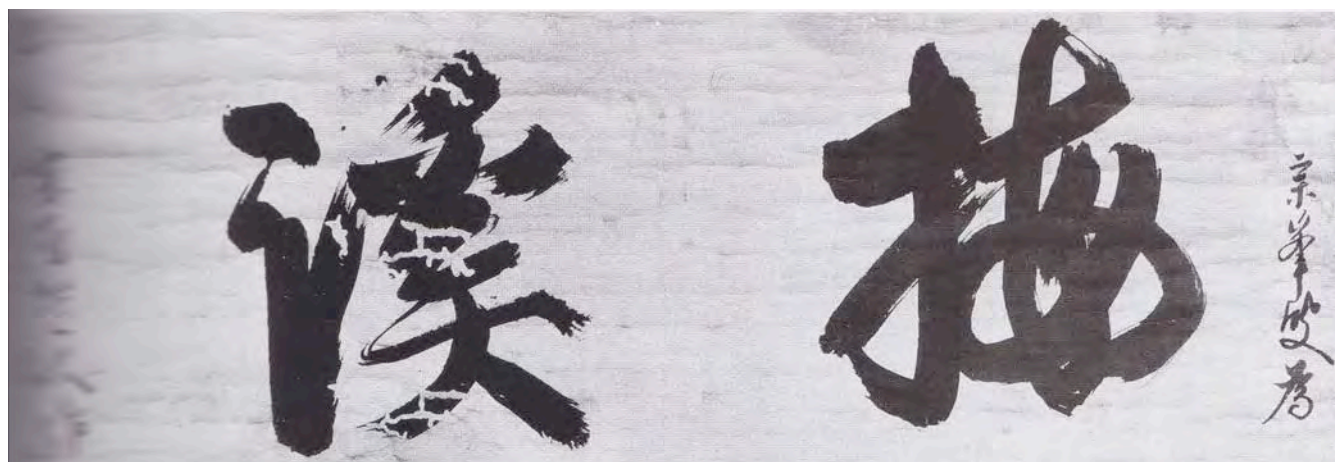 宗峯叟為
梅溪